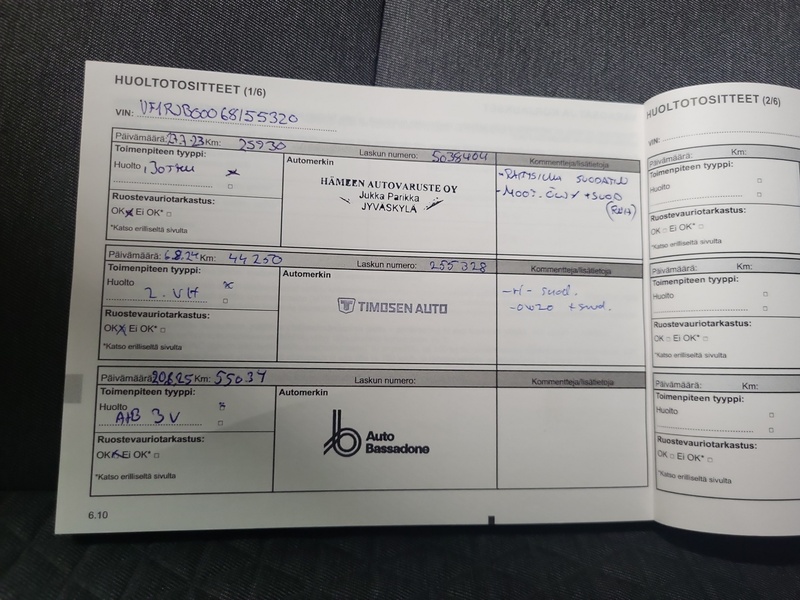 HUOLTOTOSITTEET (1/6)
VIN: VF1RJB00068155320
Päivämäärä: 27.7.23 Km: 25930 Laskun numero: 5038404 Kommentteja/lisätietoja
Toimenpiteen tyyppi: Automerkin
Huolto
HÄMEEN AUTOVARUSTE OY
Jukka Parikka
JYVÄSKYLÄ
- RAITISILMA SUODATIN
- MOOT. ÖLJY + SUOD
Ruostevauriotarkastus:
OK Ei OK*
*Katso erilliseltä sivulta
Päivämäärä: 6.8.24 Km: 44250 Laskun numero: 255328 Kommentteja/lisätietoja
Toimenpiteen tyyppi: Automerkin
Huolto
2. VH
TIMOSEN AUTO
-ri- suod.
-0W20 + suod.
Ruostevauriotarkastus:
OK Ei OK*
*Katso erilliseltä sivulta
Päivämäärä: 20.6.25 Km: 55034 Laskun numero: Kommentteja/lisätietoja
Toimenpiteen tyyppi: Automerkin
Huolto
A+B 3V
Auto
Bassadone
Ruostevauriotarkastus:
OK Ei OK*
*Katso erilliseltä sivulta
6.10
HUOLTOTOSITTEET (2/6)
VIN:
Päivämäärä: Km:
Toimenpiteen tyyppi:
Huolto
Ruostevauriotarkastus:
OK Ei OK*
*Katso erilliseltä sivulta
Päivämäärä: Km:
Toimenpiteen tyyppi:
Huolto
Ruostevauriotarkastus:
OK Ei OK*
*Katso erilliseltä sivulta
Päivämäärä: Km:
Toimenpiteen tyyppi:
Huolto
Ruostevauriotarkastus:
OK Ei OK*
*Katso erilliseltä sivulta